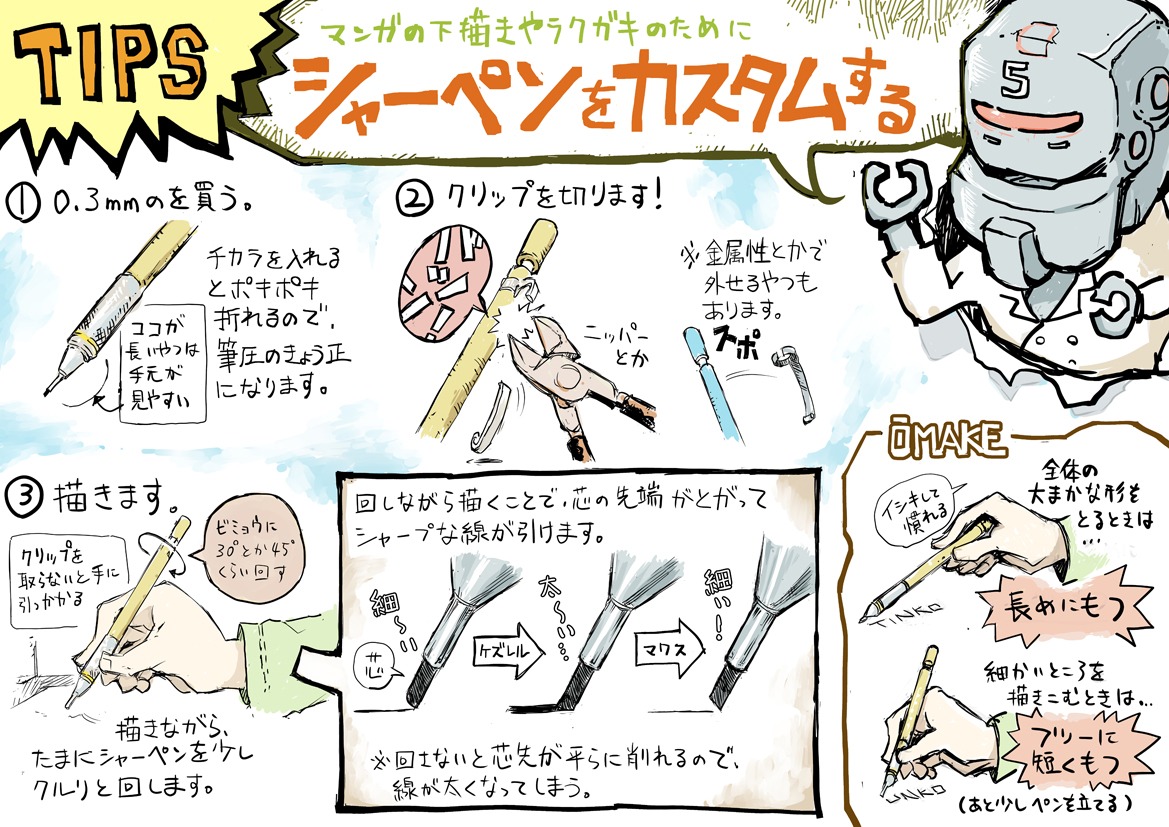 TIPS
マンガの下描きやラクガキのために
シャーペンをカスタムする
5
① 0.3mmのを買う。
チカラを入れる
とポキポキ
折れるので、
筆圧のきょう正
になります。
ココが
長いやつは
手元が
見やすい
② クリップを切ります!
バ
ギ
ニッパー
とか
※金属性とかで
外せるやつも
あります。
スポ
③ 描きます。
クリップを
取らないと手に
引っかかる
ビミョウに
30°とか45°
くらい回す
描きながら、
たまにシャーペンを少し
クルリと回します。
回しながら描くことで、芯の先端がとがって
シャープな線が引けます。
細〜い
芯
ケズレル
太〜い…
マワス
細い!
※回さないと芯先が平らに削れるので、
線が太くなってしまう。
OMAKE
イシキして
慣れる
全体の
大まかな形を
とるときは
…
TINKO
長めにもつ
細かいところを
描きこむときは…
フツーに
短くもつ
UNKO
(あと少しペンを立てる)